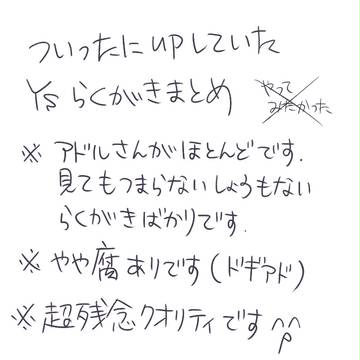 ついったにupしていた
Ysらくがきまとめ
やって
みたかった
※ アドルさんがほとんどです.
見てもつまらないしょうもない
らくがきばかりです.
※ やや腐ありです(ドギアド)
※ 超残念クオリティです^^